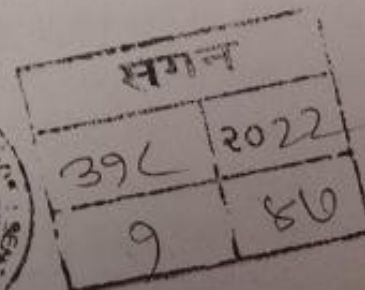 सगन
३९८ २०२२
१ ४७